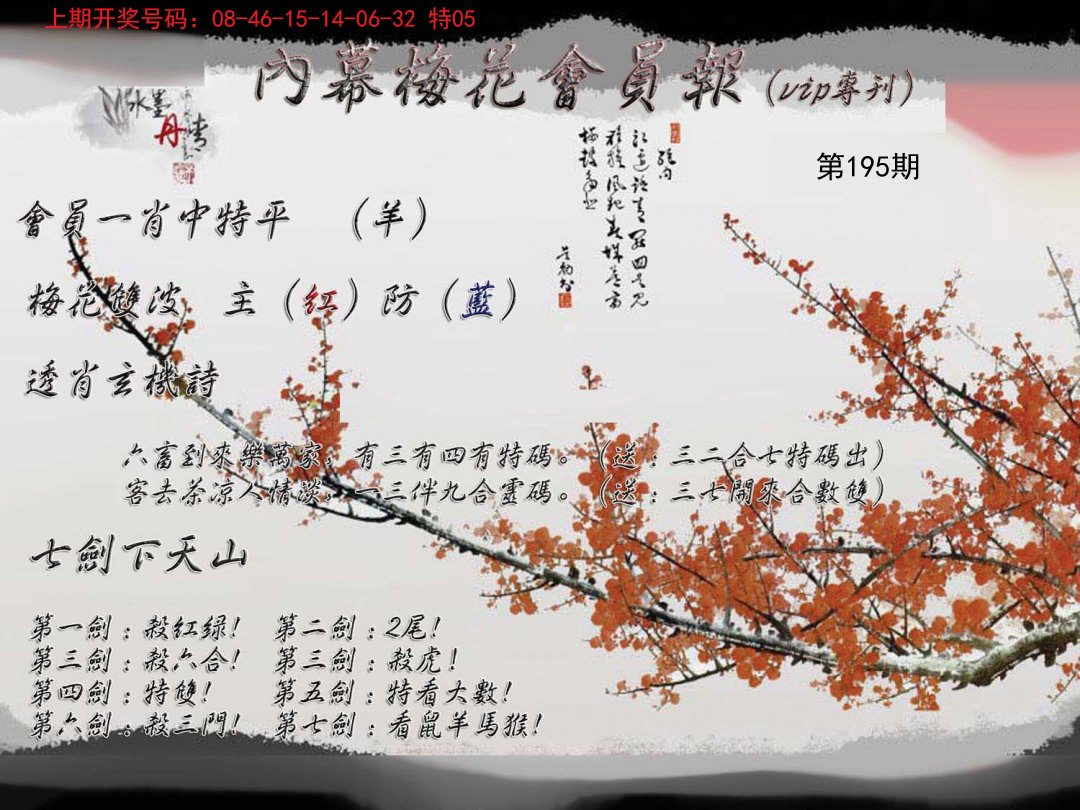 上期开奖号码：08-46-15-14-06-32 特05
內幕梅花會員報（vip專刊）
水墨丹青
第195期
會員一肖中特平 （羊）
梅花雙波 主（紅）防（藍）
透肖玄機詩
六畜到來樂萬家，有三有四有特碼。（送：三二合七特碼出）
客去茶凉人情淡，一三伴九合靈碼。（送：三七開來合數雙）
七劍下天山
第一劍：殺红绿！ 第二劍：2尾！
第三劍：殺六合！ 第三劍：殺虎！
第四劍：特雙！ 第五劍：特看大數！
第六劍：殺三門！ 第七劍：看鼠羊馬猴！